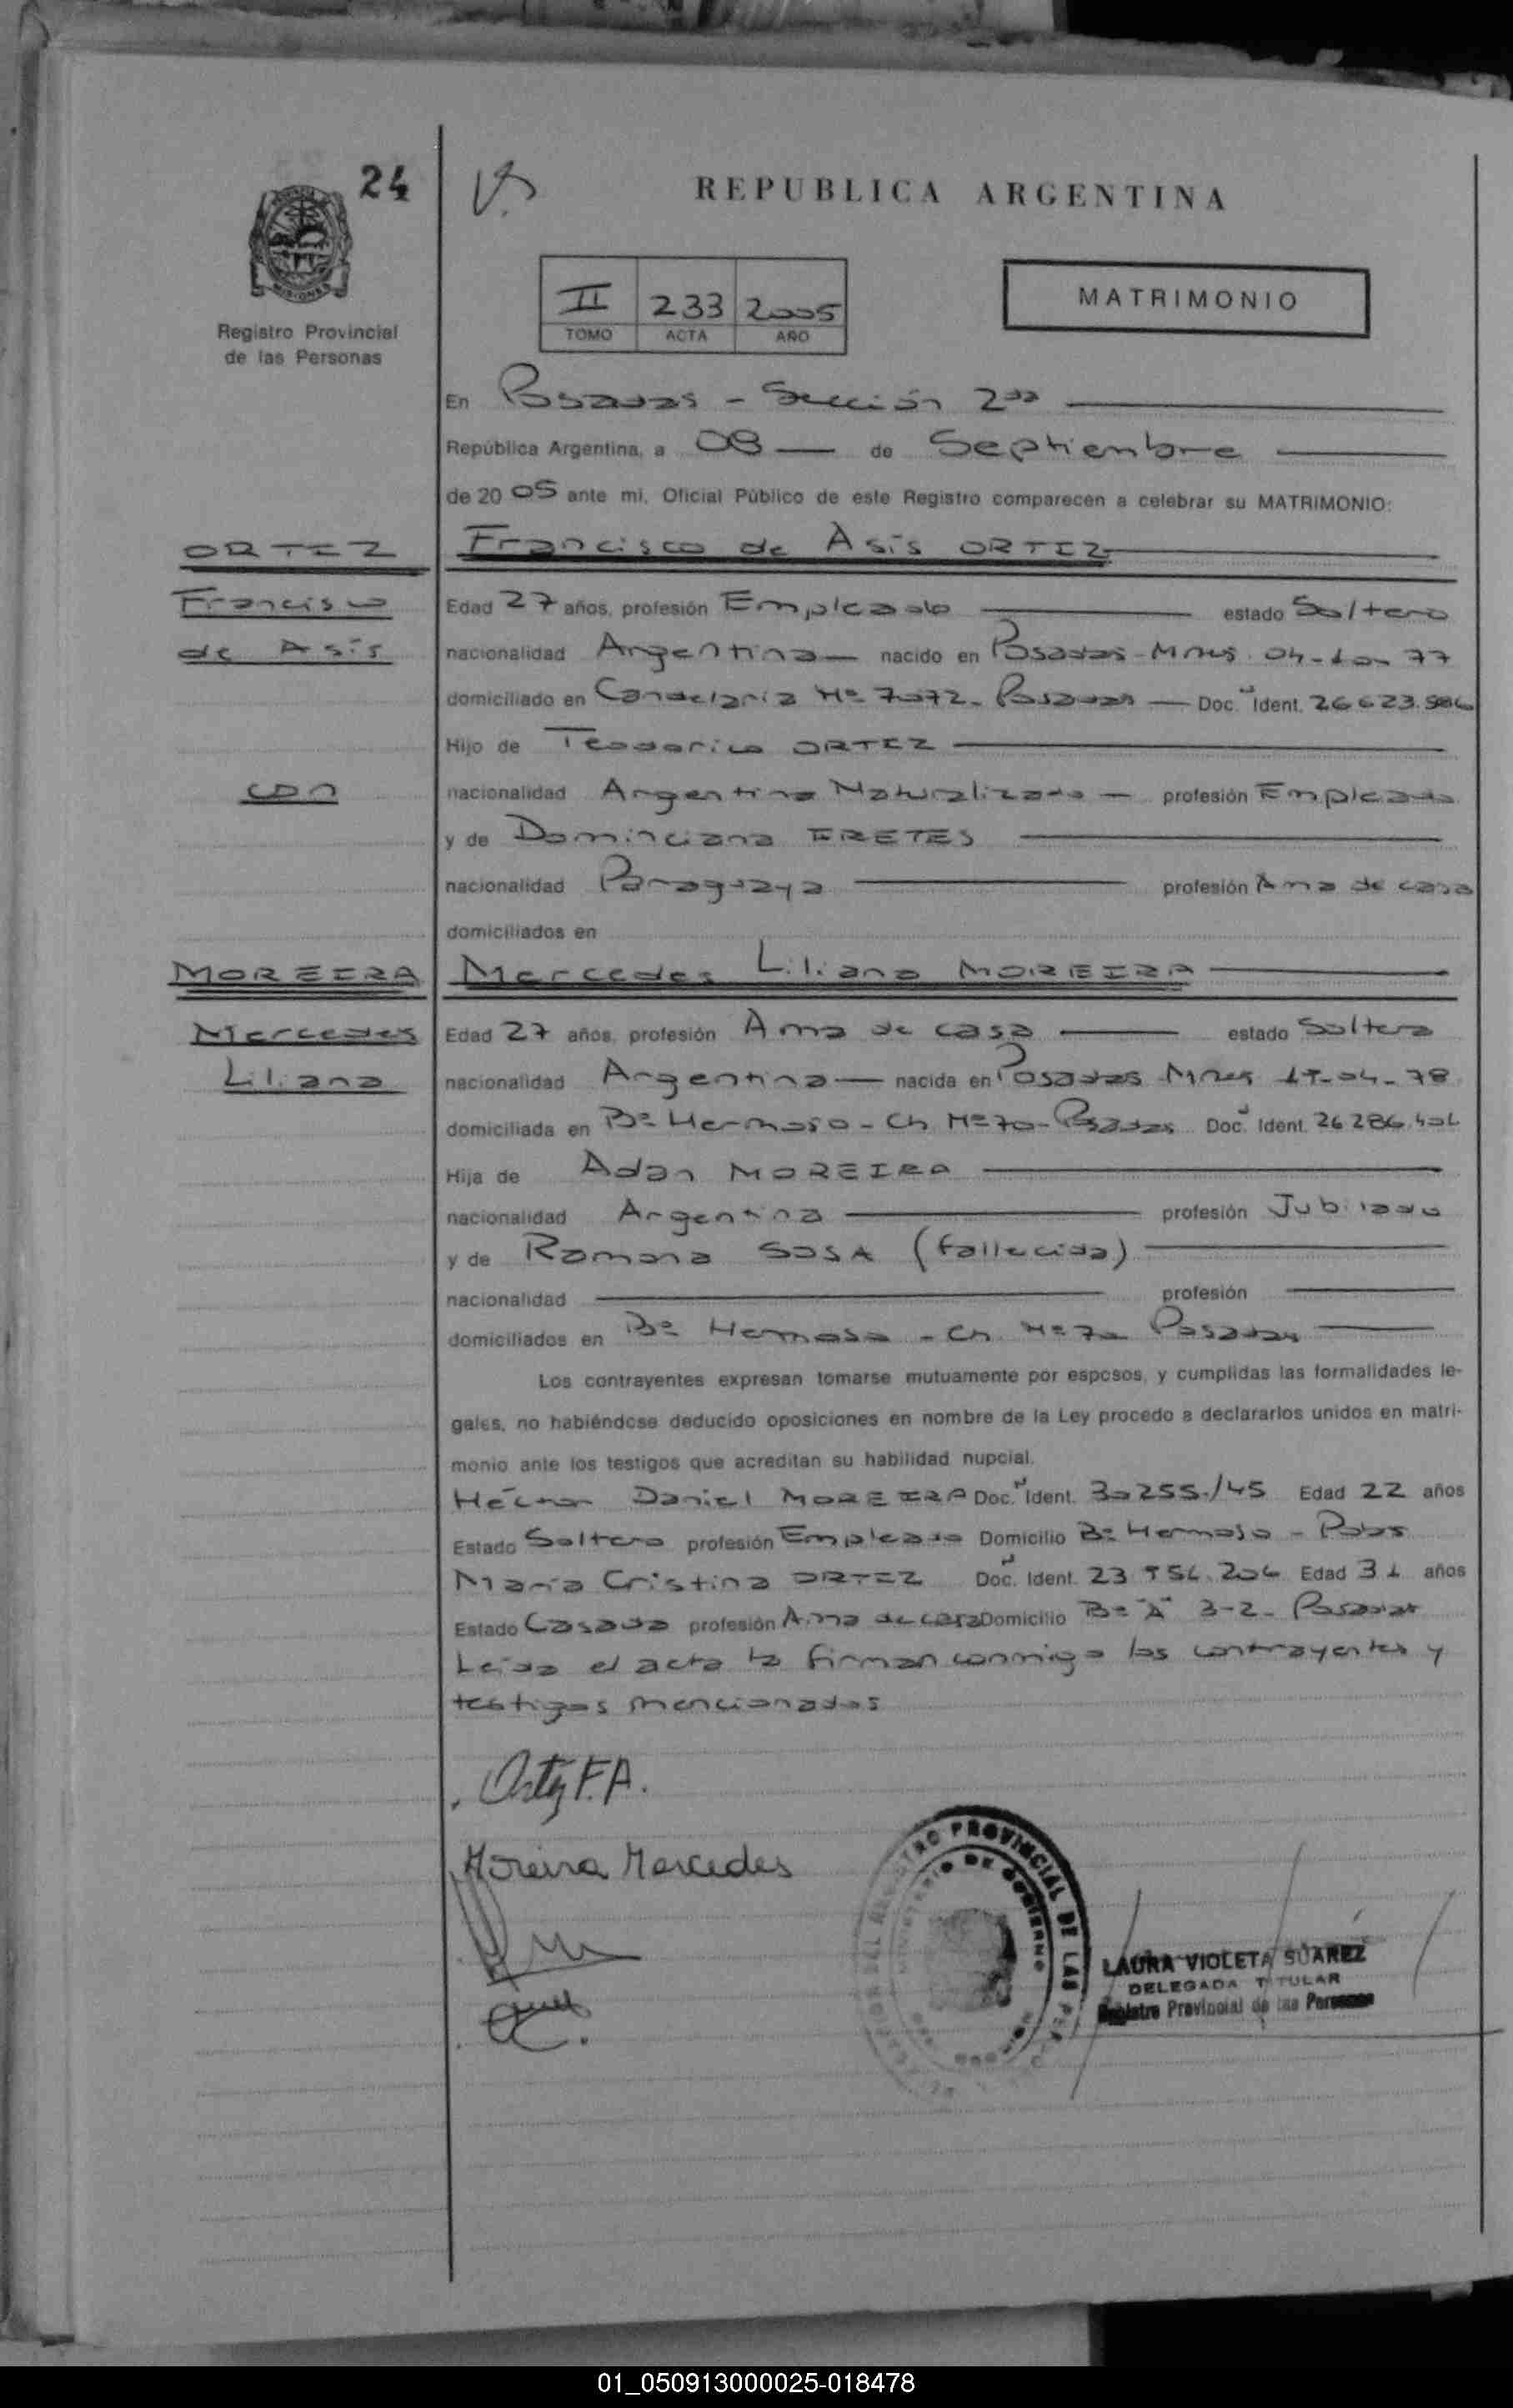 24
REPUBLICA ARGENTINA
MISIONES
Registro Provincial
de las Personas
II 233 2005
TOMO ACTA AÑO
MATRIMONIO
En Posadas - Sección 2da
República Argentina, a 08 de Septiembre
de 20 05 ante mi, Oficial Público de este Registro comparecen a celebrar su MATRIMONIO:
ORTIZ
Francisco de Asis ORTIZ
Francisco
Edad 27 años, profesión Empleado estado Soltero
de Asis
nacionalidad Argentina nacido en Posadas - Mnes. 04-10-77
domiciliado en Candelaria Nº 7072 - Posadas Doc. Ident. 26 623.986
Hijo de Teodorico ORTIZ
con
nacionalidad Argentino Naturalizado profesión Empleado
y de Dominciana FRETES
nacionalidad Paraguaya profesión Ama de casa
domiciliados en
MOREIRA
Mercedes Liliana MOREIRA
Mercedes
Edad 27 años, profesión Ama de casa estado Soltera
Liliana
nacionalidad Argentina nacida en Posadas Mnes 04-78
domiciliada en Bº Hermoso - Ch Nº 70 - Posadas Doc. Ident. 26 286.
Hija de Adan MOREIRA
nacionalidad Argentina profesión Jubilado
y de Ramona SOSA (fallecida)
nacionalidad profesión
domiciliados en Bº Hermoso - Ch. Nº 70 Posadas
Los contrayentes expresan tomarse mutuamente por esposos, y cumplidas las formalidades le-
gales, no habiéndose deducido oposiciones en nombre de la Ley procedo a declararlos unidos en matri-
monio ante los testigos que acreditan su habilidad nupcial.
Héctor Daniel MOREIRA Doc. Ident. 30255.145 Edad 22 años
Estado Soltero profesión Empleado Domicilio Bº Hermoso - Pdas
María Cristina ORTIZ Doc. Ident. 23 Edad 31 años
Estado Casada profesión Ama de casa Domicilio Bº "A" 3-2 - Posadas
Leída el acta la firman conmigo los contrayentes y
testigos mencionados
Ortiz F.A.
Moreira Mercedes
REGISTRO PROVINCIAL DE LAS
MINISTERIO DE GOBIERNO
LAURA VIOLETA SUAREZ
DELEGADA TITULAR
Registro Provincial de las Personas
01_050913000025-018478